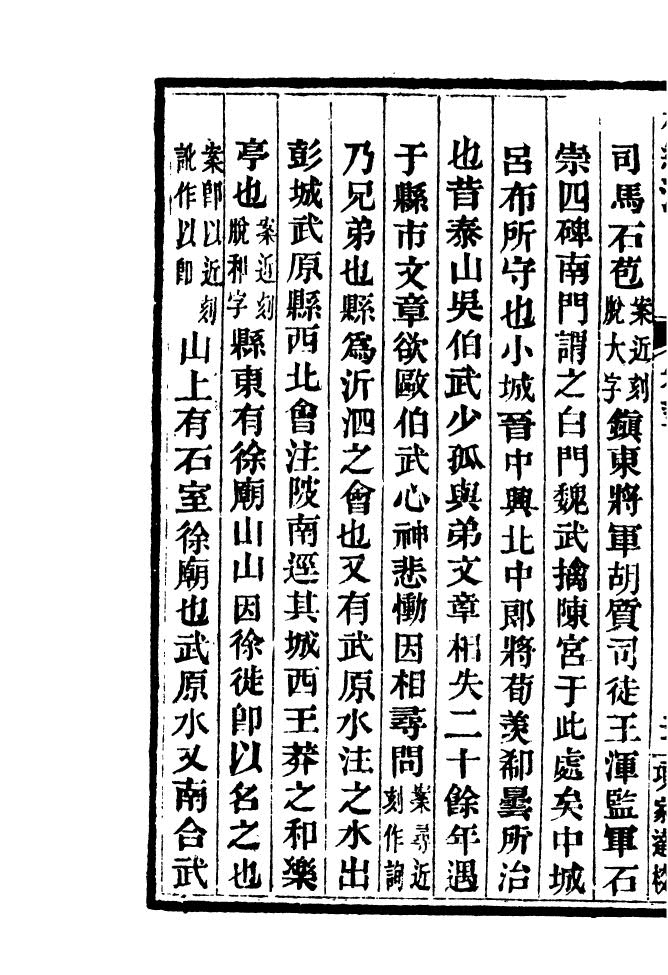 司馬石苞案近刻脫大字鎮東將軍胡質司徒王渾監軍石
崇四碑南門謂之白門魏武擒陳宮于此處矣中城
呂布所守也小城晉中興北中郎將荀羡郗曇所治
也昔泰山吳伯武少孤與弟文章相失二十餘年遇
于縣市文章欲歐伯武心神悲慟因相尋問案尋近刻作詢
乃兄弟也縣爲沂泗之會也又有武原水注之水出
彭城武原縣西北會注陂南逕其城西王莽之和樂
亭也案近刻脫和字縣東有徐廟山山因徐徙卽以名之也
案卽以近刻訛作以卽山上有石室徐廟也武原水又南合武